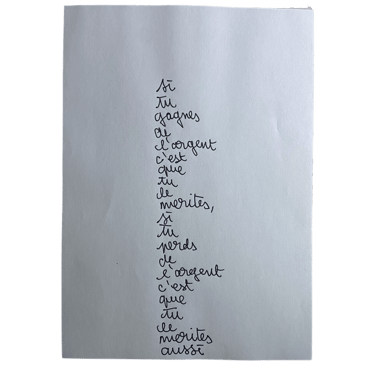 si
tu
gagnes
de
l'argent
c'est
que
tu
le
merites,
si
tu
perds
de
l'argent
c'est
que
tu
le
merites
aussi